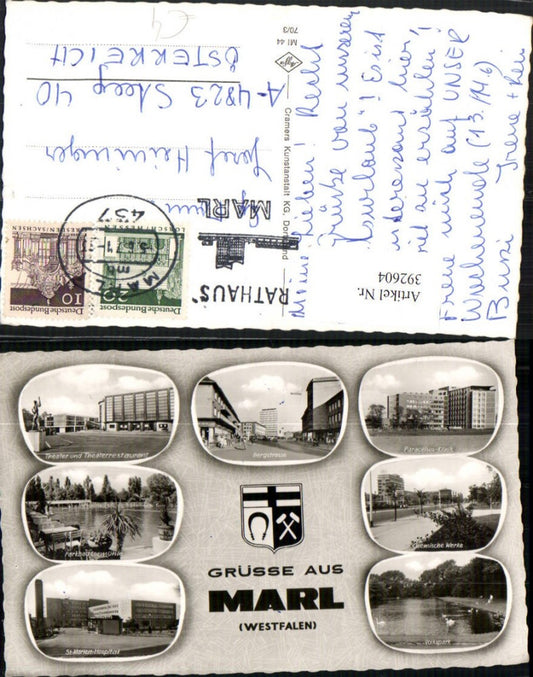 Meine Lieben! Recht
Grüße von unserem
"Kurlaub"! Es ist
interessant hier,
viel zu erzählen!
Freue mich auf UNSER
Wochenende (13./14.6)
Bussi Irene +
Josef Heininger
A-4823 Steeg 40
ÖSTERREICH
Cramers Kunstanstalt KG, Dortmund
Agfa
MI 44
70/3
Artikel Nr.
392604
RATHAUS
MARL
437
MARL
Deutsche Bundespost
10
DRESDEN/SACHSEN
Deutsche Bundespost
20
Theater und Theaterrestaurant
Bergstrasse
Paracelsus-Klinik
Chemische Werke
St. Marien-Hospital
Volkspark
GRÜSSE AUS
MARL
(WESTFALEN)